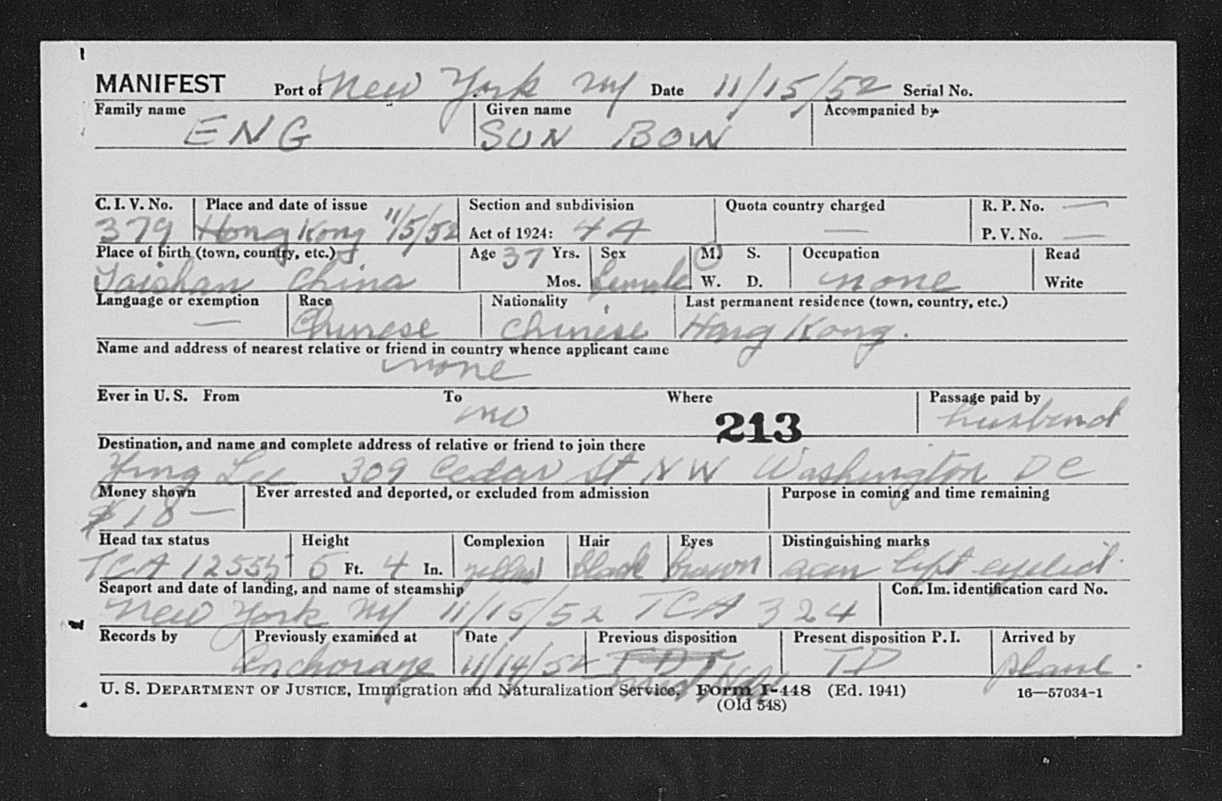 MANIFEST Port of New York NY Date 11/15/52 Serial No.
Family name Given name Accompanied by
ENG SUN BOW
C. I. V. No. Place and date of issue Section and subdivision Quota country charged R. P. No. —
379 Hong Kong 11/5/52 Act of 1924: 4A — P. V. No. —
Place of birth (town, country, etc.) Age 37 Yrs. Sex M. S. Occupation Read
Taishan China Mos. female W. D. none Write
Language or exemption Race Nationality Last permanent residence (town, country, etc.)
— Chinese Chinese Hong Kong.
Name and address of nearest relative or friend in country whence applicant came
none
Ever in U. S. From To Where Passage paid by
no 213 husband
Destination, and name and complete address of relative or friend to join there
Ying Lee 309 Cedar St NW Washington DC
Money shown Ever arrested and deported, or excluded from admission Purpose in coming and time remaining
$18—
Head tax status Height Complexion Hair Eyes Distinguishing marks
TCA 12555 5 Ft. 4 In. yellow black brown left eyelid.
Seaport and date of landing, and name of steamship Con. Im. identification card No.
New York NY 11/15/52 TCA 324
Records by Previously examined at Date Previous disposition Present disposition P. I. Arrived by
Anchorage 11/14/52 TD plane.
U. S. DEPARTMENT OF JUSTICE, Immigration and Naturalization Service, Form I-448 (Ed. 1941) 16—57034-1
(Old 548)